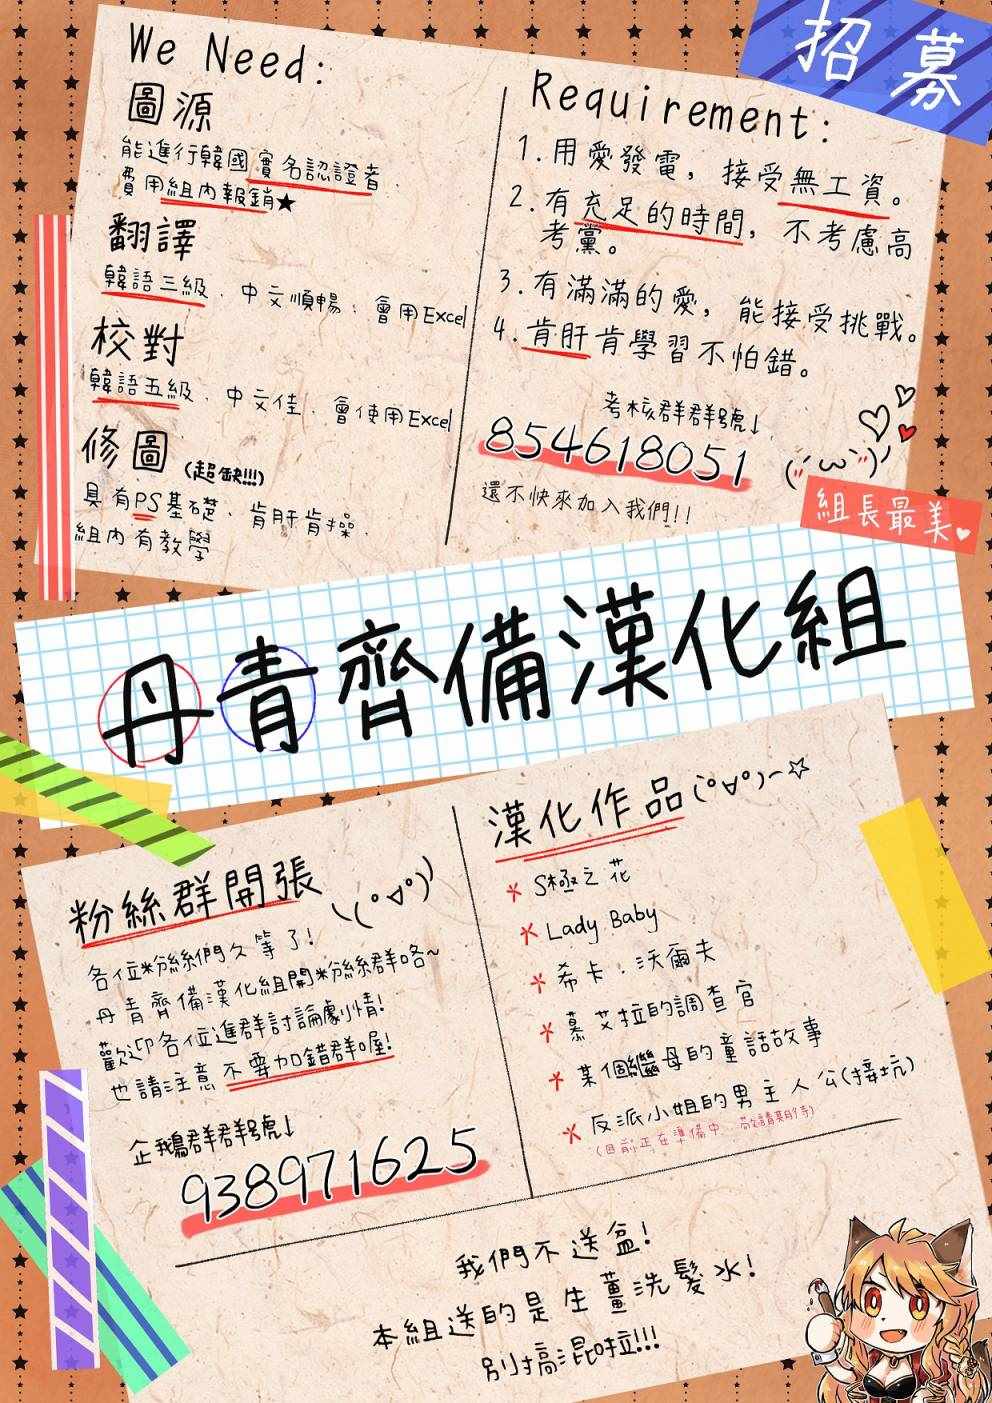 招募
We Need:
圖源
能進行韓國實名認證者.
費用組內報銷★
翻譯
韓語三級、中文順暢、會用Excel
校對
韓語五級、中文佳、會使用Excel
修圖(超缺!!!)
具有PS基礎、肯肝肯操.
組內有教學
Requirement:
1.用愛發電，接受無工資。
2.有充足的時間，不考慮高
考黨。
3.有滿滿的愛，能接受挑戰。
4.肯肝肯學習不怕錯。
考核群群號↓
854618051
還不快來加入我們!!
組長最美
丹青齊備漢化組
粉絲群開張
各位粉絲們久等了!
丹青齊備漢化組開粉絲群咯~
歡迎各位進群討論劇情!
也請注意不要加錯群喔!
企鵝群群號↓
938971625
漢化作品(°∀°)~☆
S極之花
Lady Baby
希卡·沃爾夫
慕艾拉的調查官
某個繼母的童話故事
反派小姐的男主人公(接坑)
(目前正在準備中，敬請期待)
我們不送盆!
本組送的是生薑洗髮水!
別搞混啦!!!